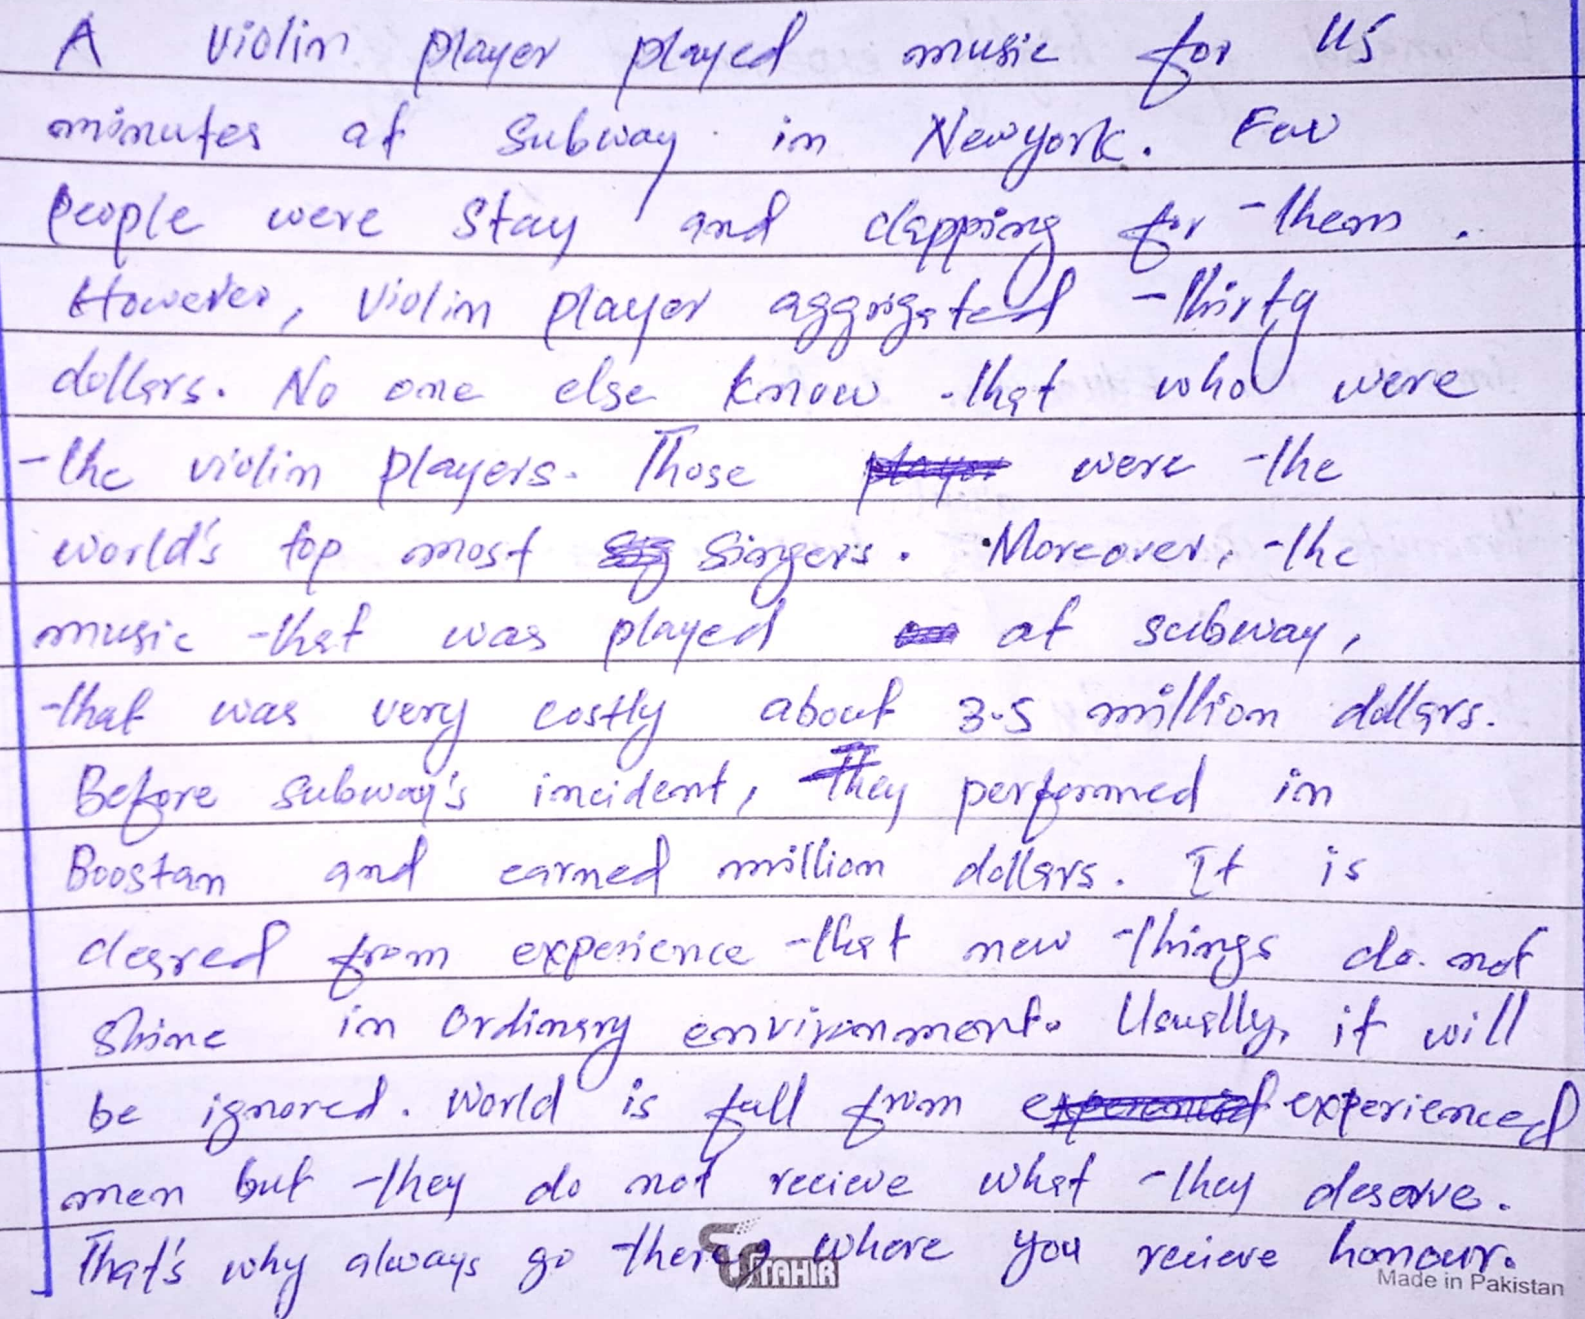 A violin player played music for 45
minutes at Subway in Newyork. Few
people were stay and clapping for them.
However, violin player aggrigated thirty
dollars. No one else know that who were
the violin players. Those were the
world's top most singers. Moreover, the
music that was played at subway,
that was very costly about 3.5 million dollars.
Before subway's incident, They performed in
Boostan and earned million dollars. It is
cleared from experience that new things do not
shine in ordinary environment. Usually, it will
be ignored. World is full from experienced
men but they do not recieve what they deserve.
That's why always go there, where you recieve honour.
TAHIR
Made in Pakistan